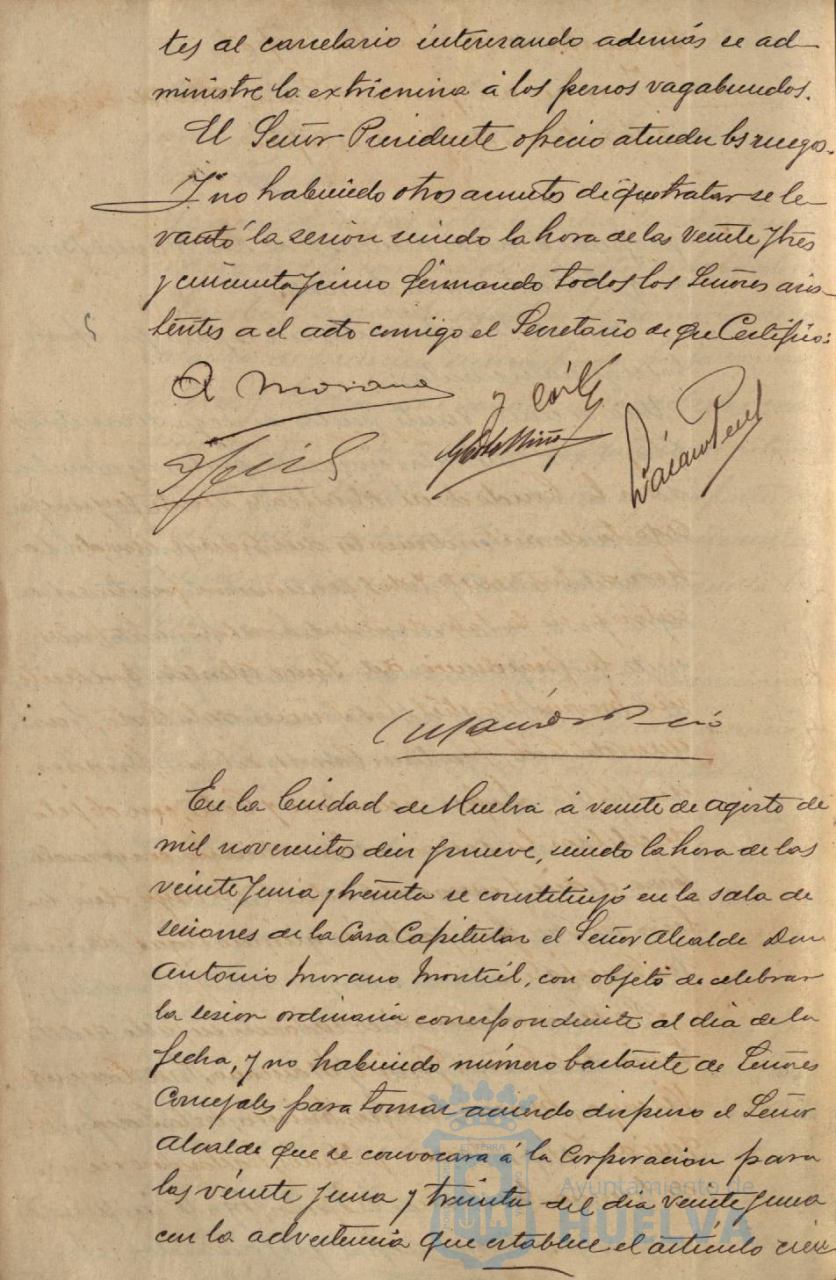 tes al carcelario interesando además se ad-
ministre la extricnina á los perros vagabundos.
El Señor Presidente ofrecio atender los ruegos.
Y no habiendo otros asuntos de que tratar se le-
vantó la sesión siendo la hora de las veinte y tres
y cincuenta y cinco firmando todos los Señores asis-
tentes a el acto comigo el Secretario de que Certifico:
A Morano
En la Ciudad de Huelva á veinte de agosto de
mil novecientos diez y nueve, siendo la hora de las
veinte y una y treinta se constituyó en la sala de
sesiones de la Casa Capitular el Señor Alcalde Don
Antonio Morano Montiel, con objeto de celebrar
la sesion ordinaria correspondiente al dia de la
fecha, y no habiendo número bastante de Señores
Concejales para tomar acuerdo dispuso el Señor
Alcalde que se convocara á la Corporacion para
las veinte y una y treinta del dia veinte y una
con la advertencia que establece el artículo cien
Ayuntamiento de
HUELVA